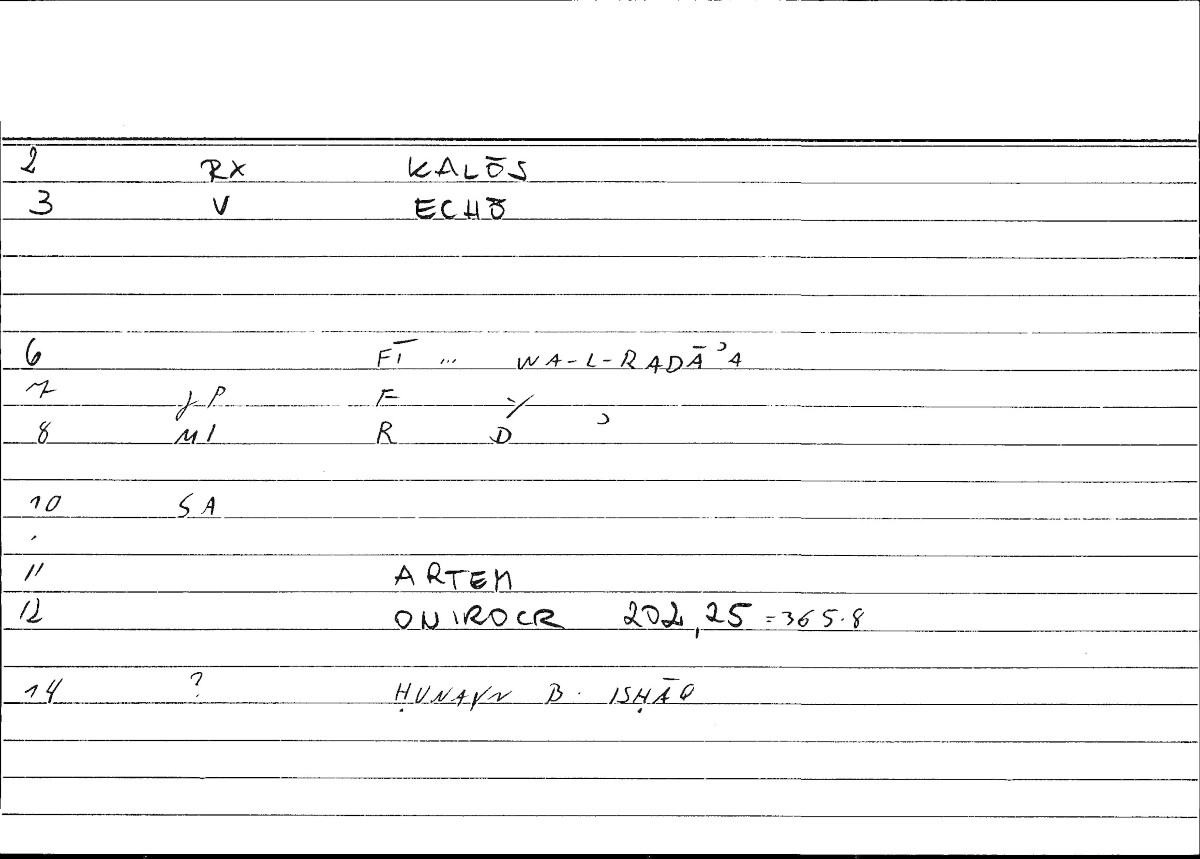 2 RX KALŌS
3 V ECHŌ
6 FĪ ... WA-L-RADĀʾA
7 F
8 MI R D ʾ
10 SA
11 ARTEM
12 ONIROCR 202,25 =365.8
14 ? ḤUNAYN B. ISḤĀQ